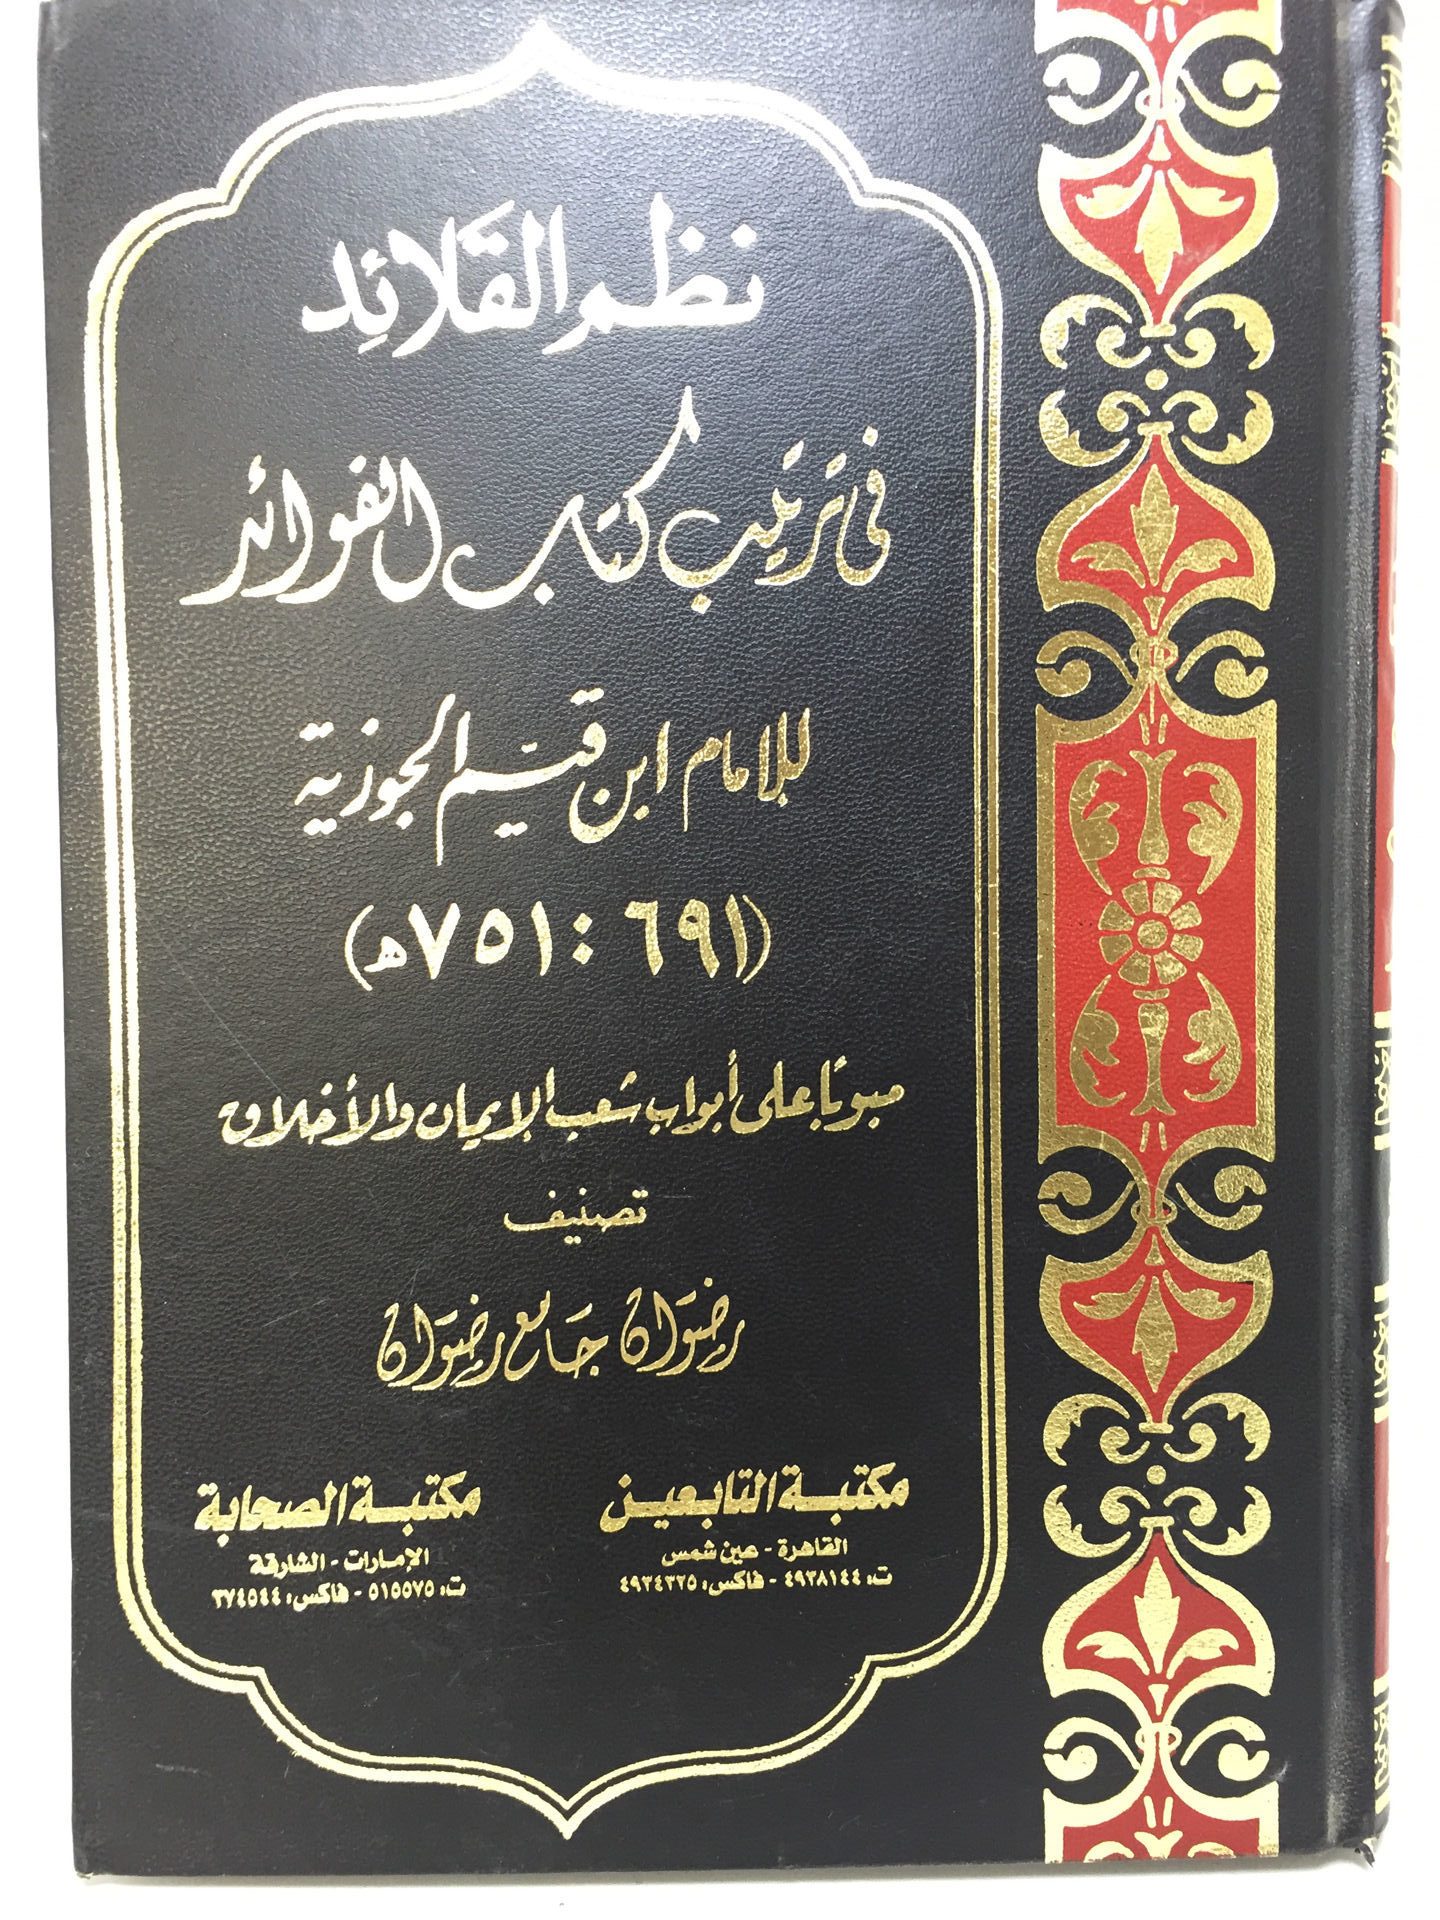 نظم القَلائِد
في ترتيب كتاب الفوائد
للإمام ابن قيم الجوزية
(٦٩١ : ٧٥١هـ)
مبوبًا على أبواب شعب الإيمان والأخلاق
تصنيف
رضوان جامع رضوان
مكتبة التابعين
القاهرة - عين شمس
ت: ٤٩٣٨١٤٤ - فاكس: ٤٩٣٤٣٢٥
مكتبة الصحابة
الإمارات - الشارقة
ت: ٥١٥٥٧٥ - فاكس: ٣٧٤٥٤٤